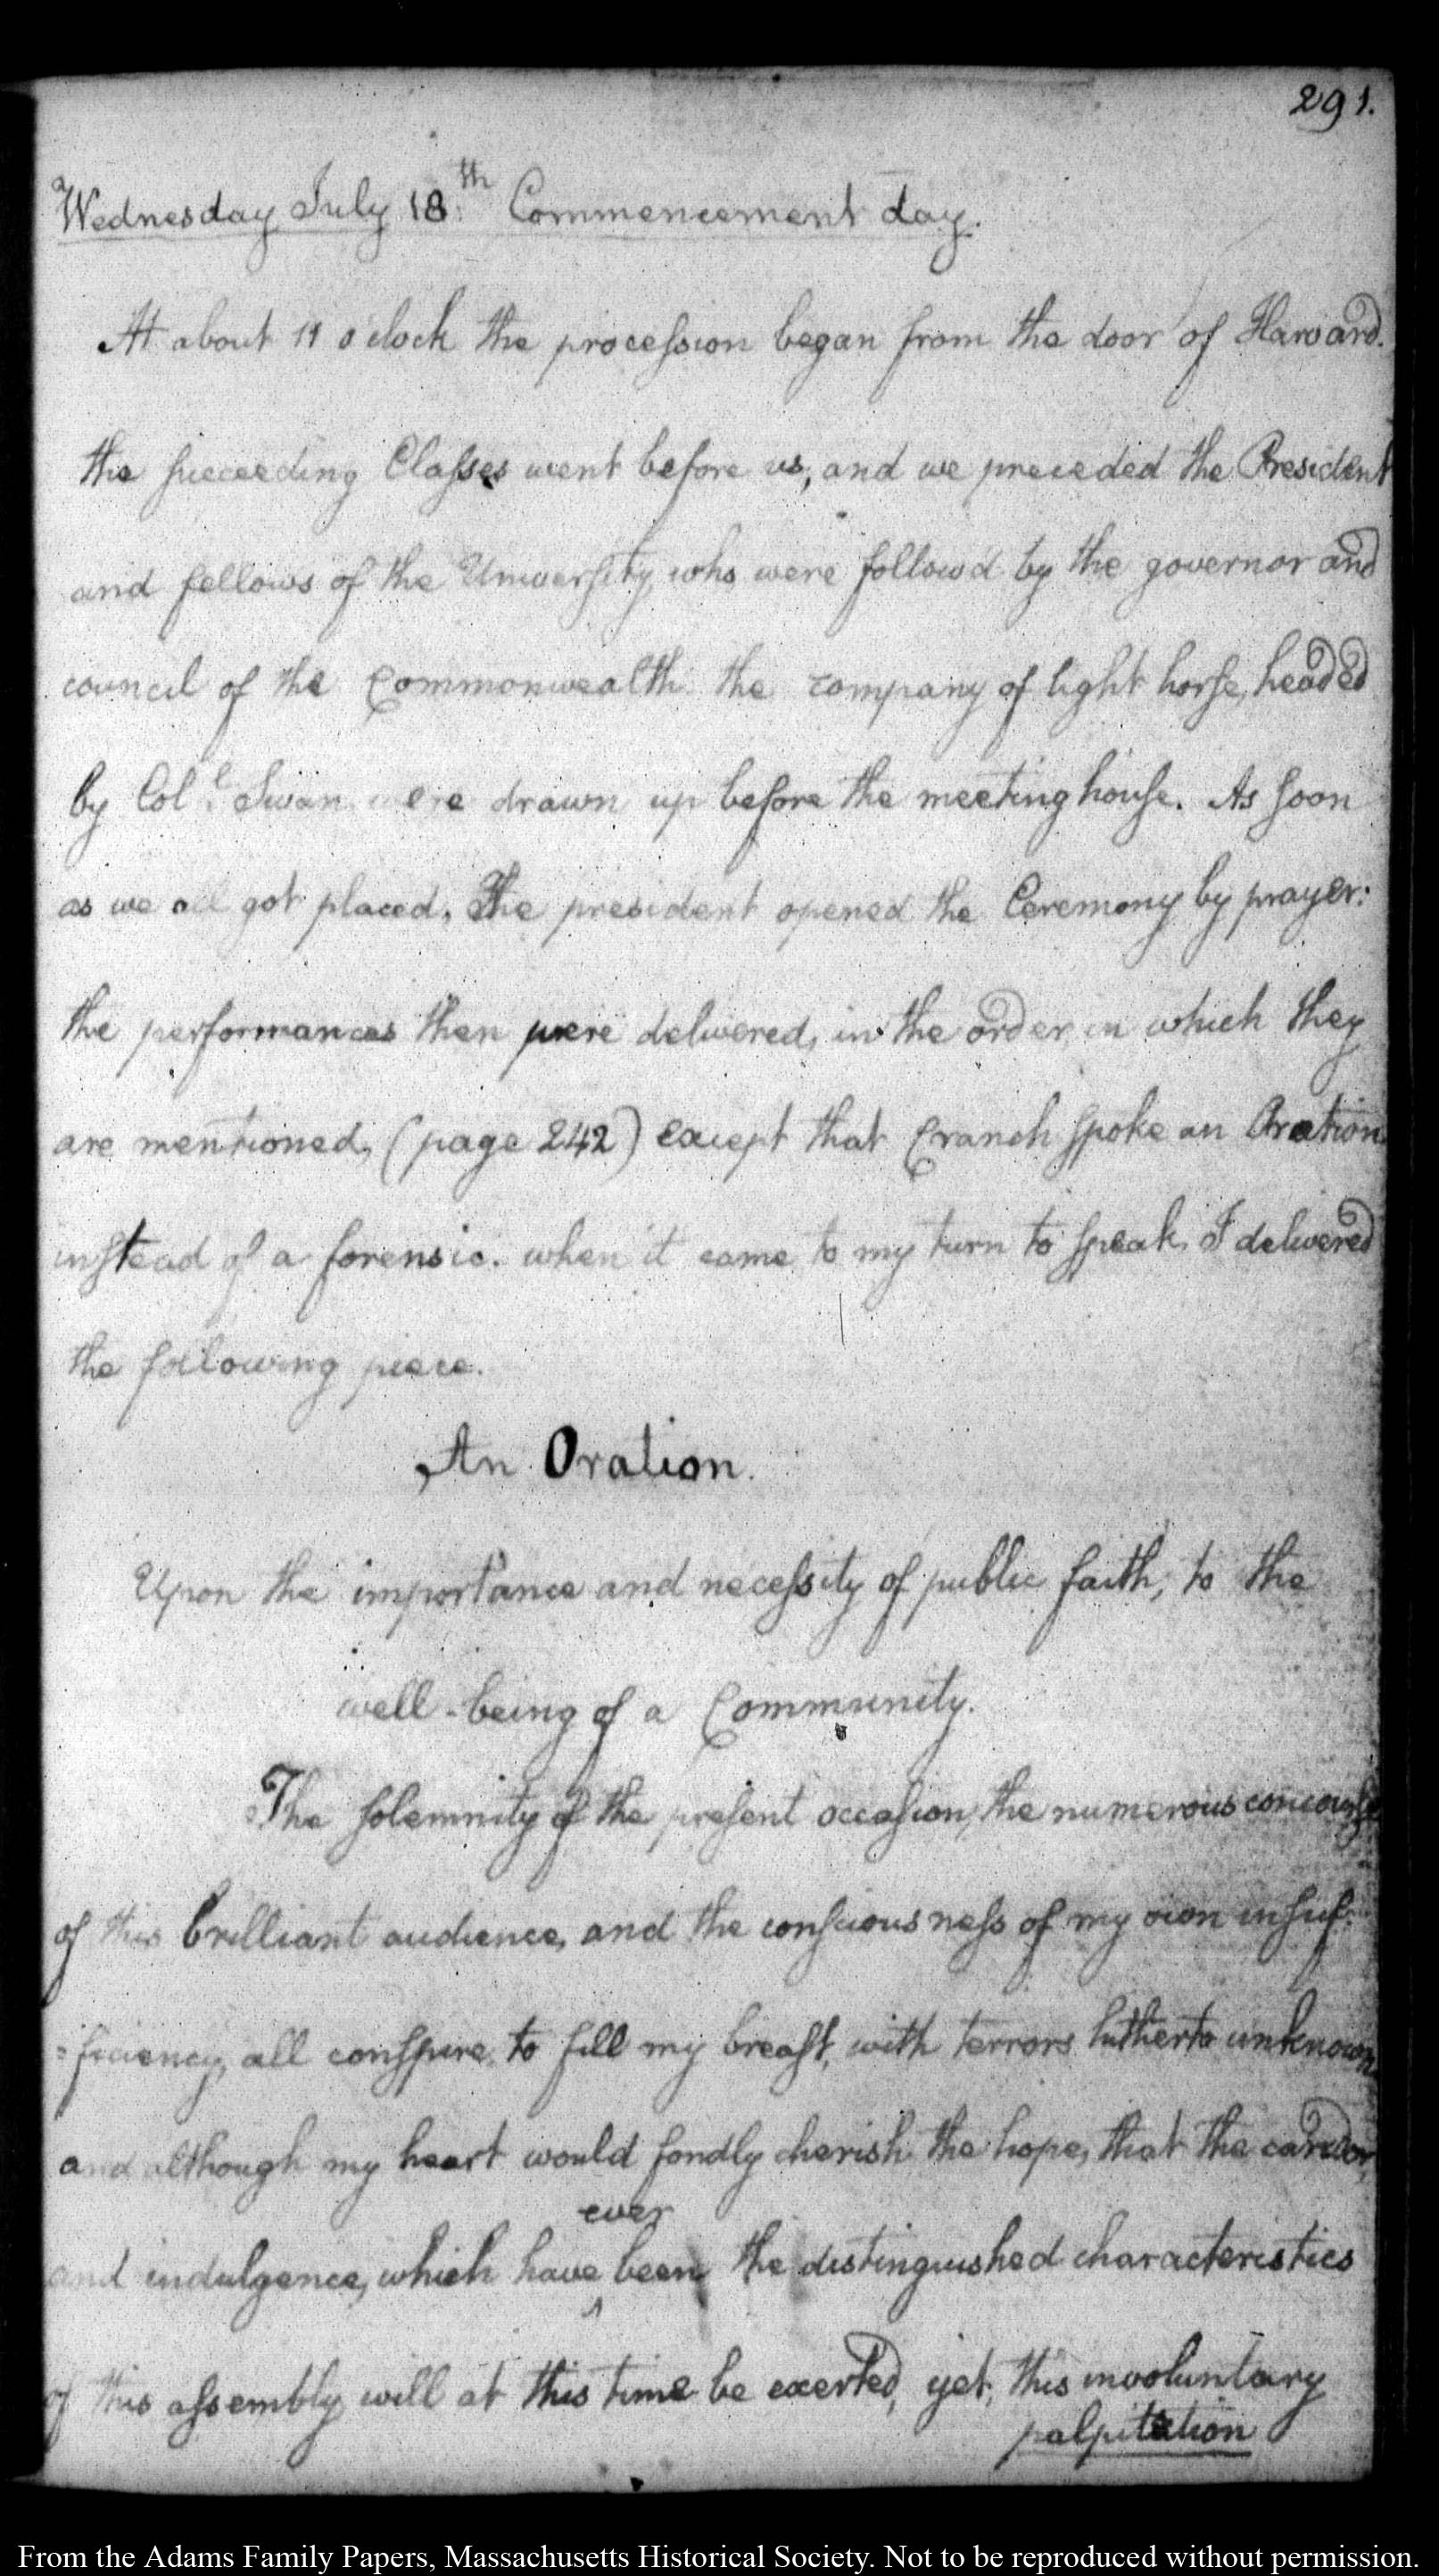 291.
Wednesday July 18:th Commencement day.
At about 11 o'clock the procession began from the door of Harvard.
the succeeding Classes went before us, and we preceded the President
and fellows of the University, who were follow'd by the governor and
council of the Commonwealth. the company of light horse, headed
by Coll. Swan, were drawn up before the meeting house. As soon
as we all got placed, The president opened the Ceremony by prayer:
the performances then were delivered, in the order, in which they
are mentioned, (page 242) except that Cranch spoke an Oration
instead of a forensic. when it came to my turn to speak, I delivered
the following piece.
An Oration.
Upon the importance and necessity of public faith, to the
well-being of a Community.
The solemnity of the present occasion, the numerous concourse
of this brilliant audience, and the consciousness of my own insuf-
=ficiency, all conspire, to fill my breast, with terrors hitherto unknown
and although my heart would fondly cherish the hope, that the candor,
ever
and indulgence, which have ^ been the distinguished characteristics
of this assembly, will at this time be exerted, yet, this involuntary
palpitation
From the Adams Family Papers, Massachusetts Historical Society. Not to be reproduced without permission.